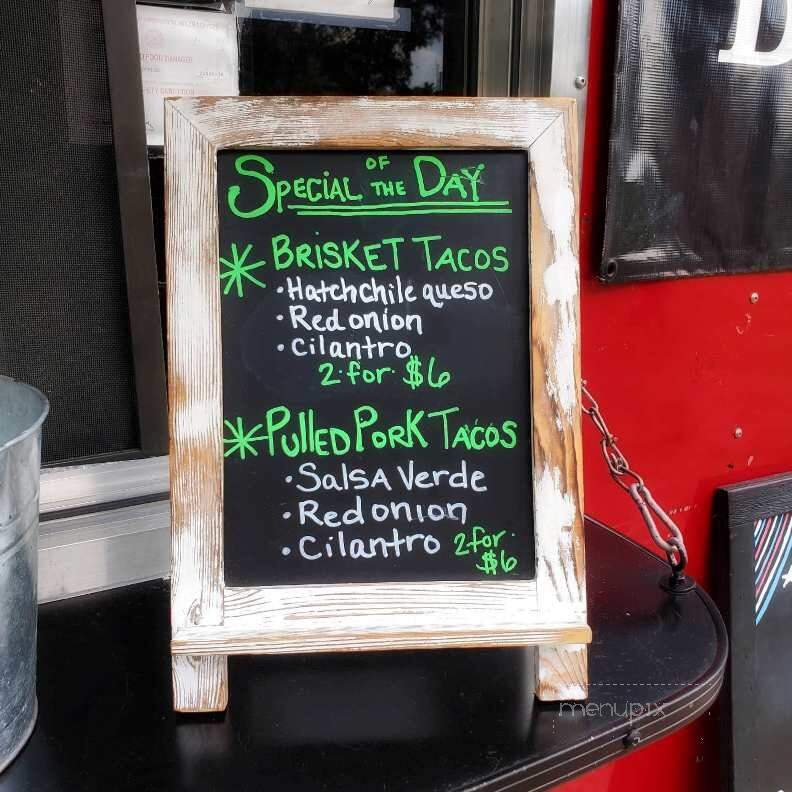 Special of the Day
Brisket Tacos
• Hatch chile queso
• Red onion
• Cilantro
2 for $6
Pulled Pork Tacos
• Salsa Verde
• Red onion
• Cilantro 2 for
$6
D
menupix